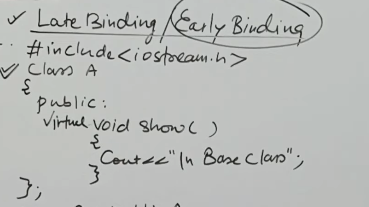 ✓ Late Binding / Early Binding
#include<iostream.h>
✓ Class A
{
public:
virtual void show( )
{
Cout<<"In Base Class";
}
};